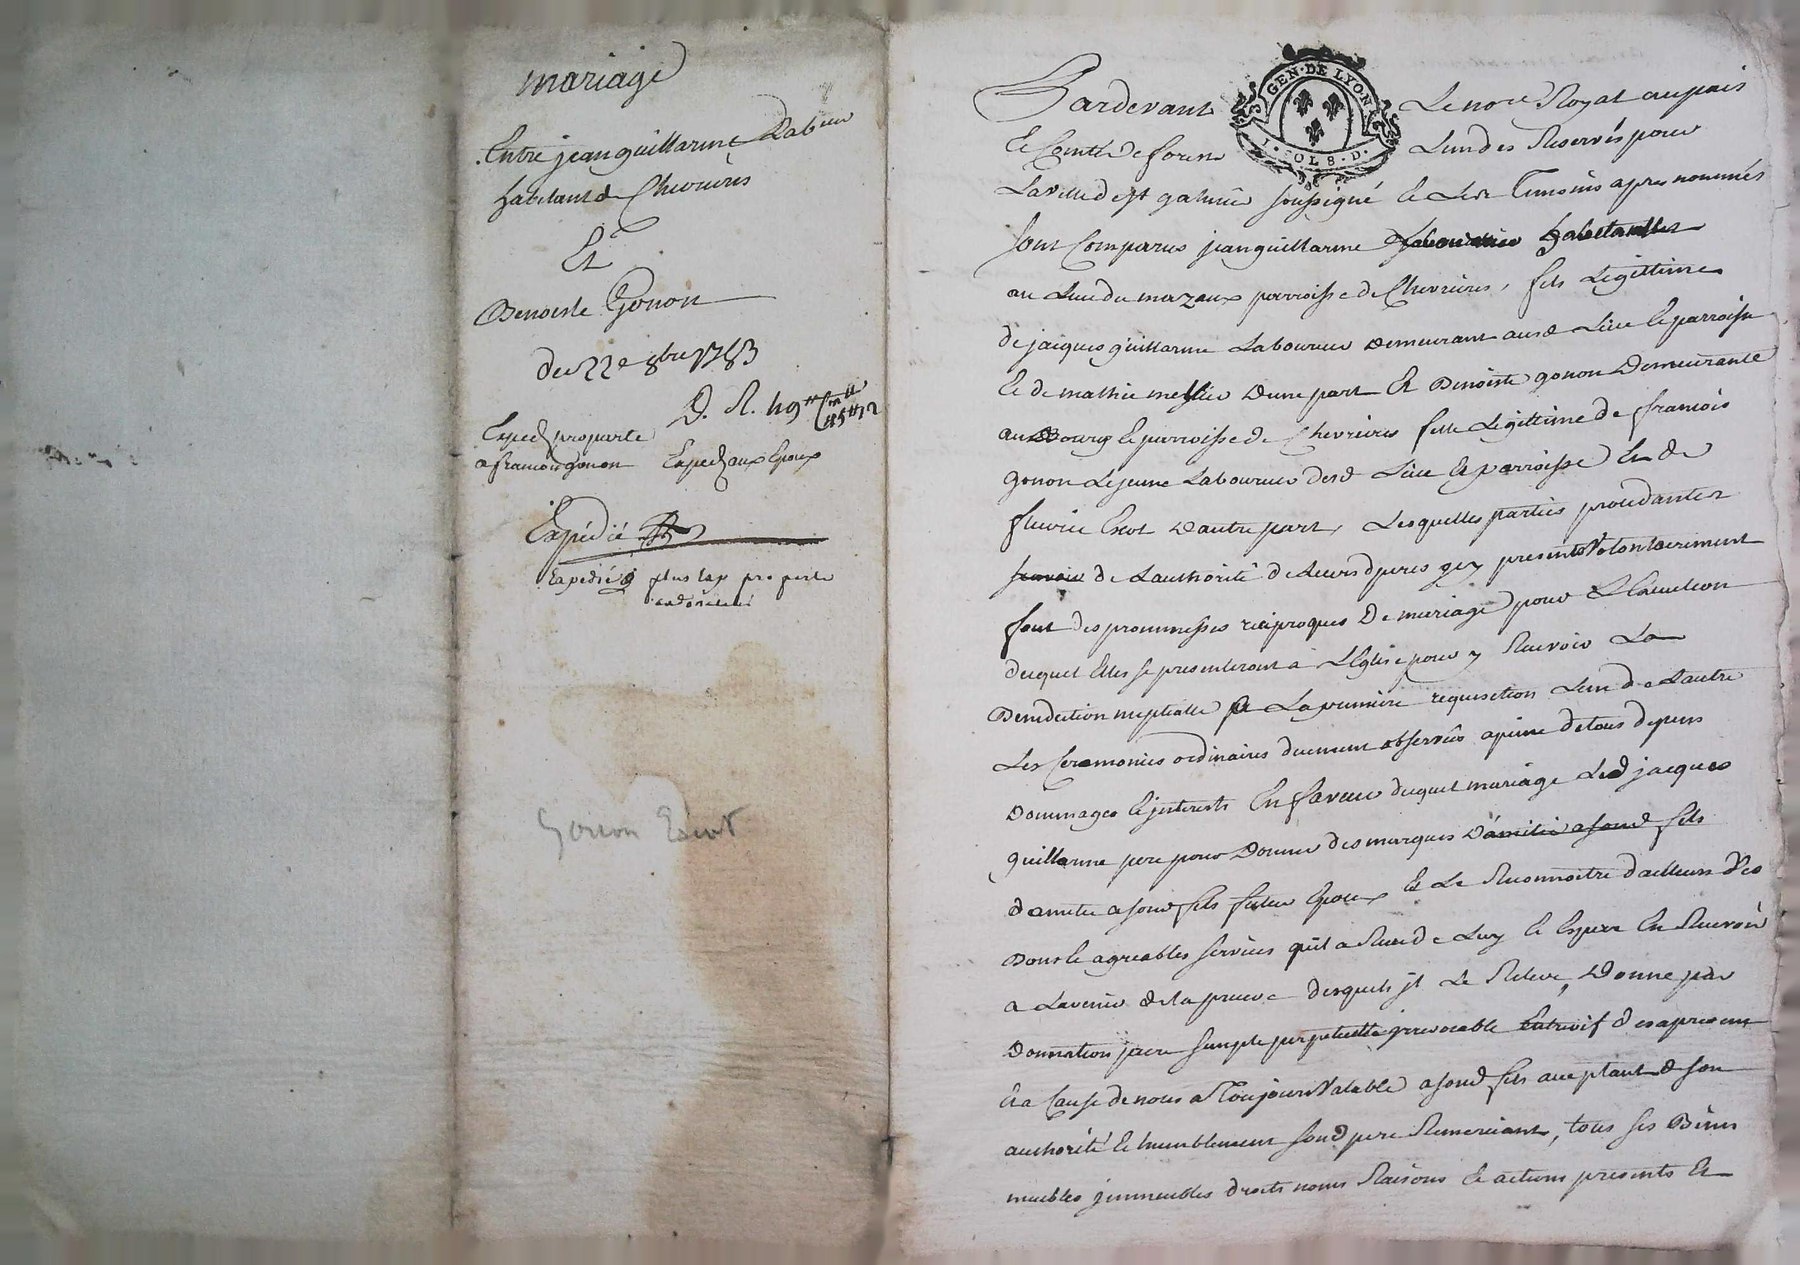 mariage
Entre jean guillarme Labeur
habitant de Chevrieres
Et
Benoiste Gonon
du 22e 8bre 1783
D. R. 49#
Exped proparte
a francois gonon Exped aux Epoux
Expédié
Expédié plus tap pro parte
Gonon
GEN. DE LYON
1. SOLS. D.
Pardevant Le nore Royal au pais
Et Comté de forest Lun des Reservés pour
La ville de st galmier soussigné Et Les Temoins apres nommés
sont Comparus jean guillarme Laboureur habitant
au Lieu du mazaux parroisse de Chevrieres, fils Légittime
de jacques guillarme Laboureur demeurant aud Lieu Et parroisse
Et de mathie meslier d'une part Et Benoiste gonon Demeurante
au Bourg Et parroisse de Chevrieres fille Légittime de francois
gonon Lejeune Laboureur dud Lieu Et parroisse Et de
fleurie Dautre part, Lesquelles parties procedantes
de Lauthorité de Leurs d peres icy presents Volontairement
font des prommesses reciproques De mariage pour L'Execution
duquel Elles se presenteront à L'Eglise pour y Recevoir La
Benediction nuptialle a La premiere requisition Lun de Lautre
Les Ceremonies ordinaires duement observées a peine de tous depens
Dommages Et interests En faveur duquel mariage Led jacques
guillarme pere pour Donner des marques D'amitié a soned fils
d'amitié a soned fils futur Epoux Et Le Reconnoitre d'ailleurs des
Bons Et agreables services qu'il a Receu de Luy Et Espere En Recevoir
a Lavenir de la preuve desquels il Le Releve, Donne par
Donnation pure simple perpetuelle irrevocable Entrevif des apresent
Et a Cause de nous a Toujours Valable a soned fils acceptant de son
authorité Et humblement soned pere Remerciant, tous ses Biens
meubles immeubles droits noms Raisons Et actions presents Et